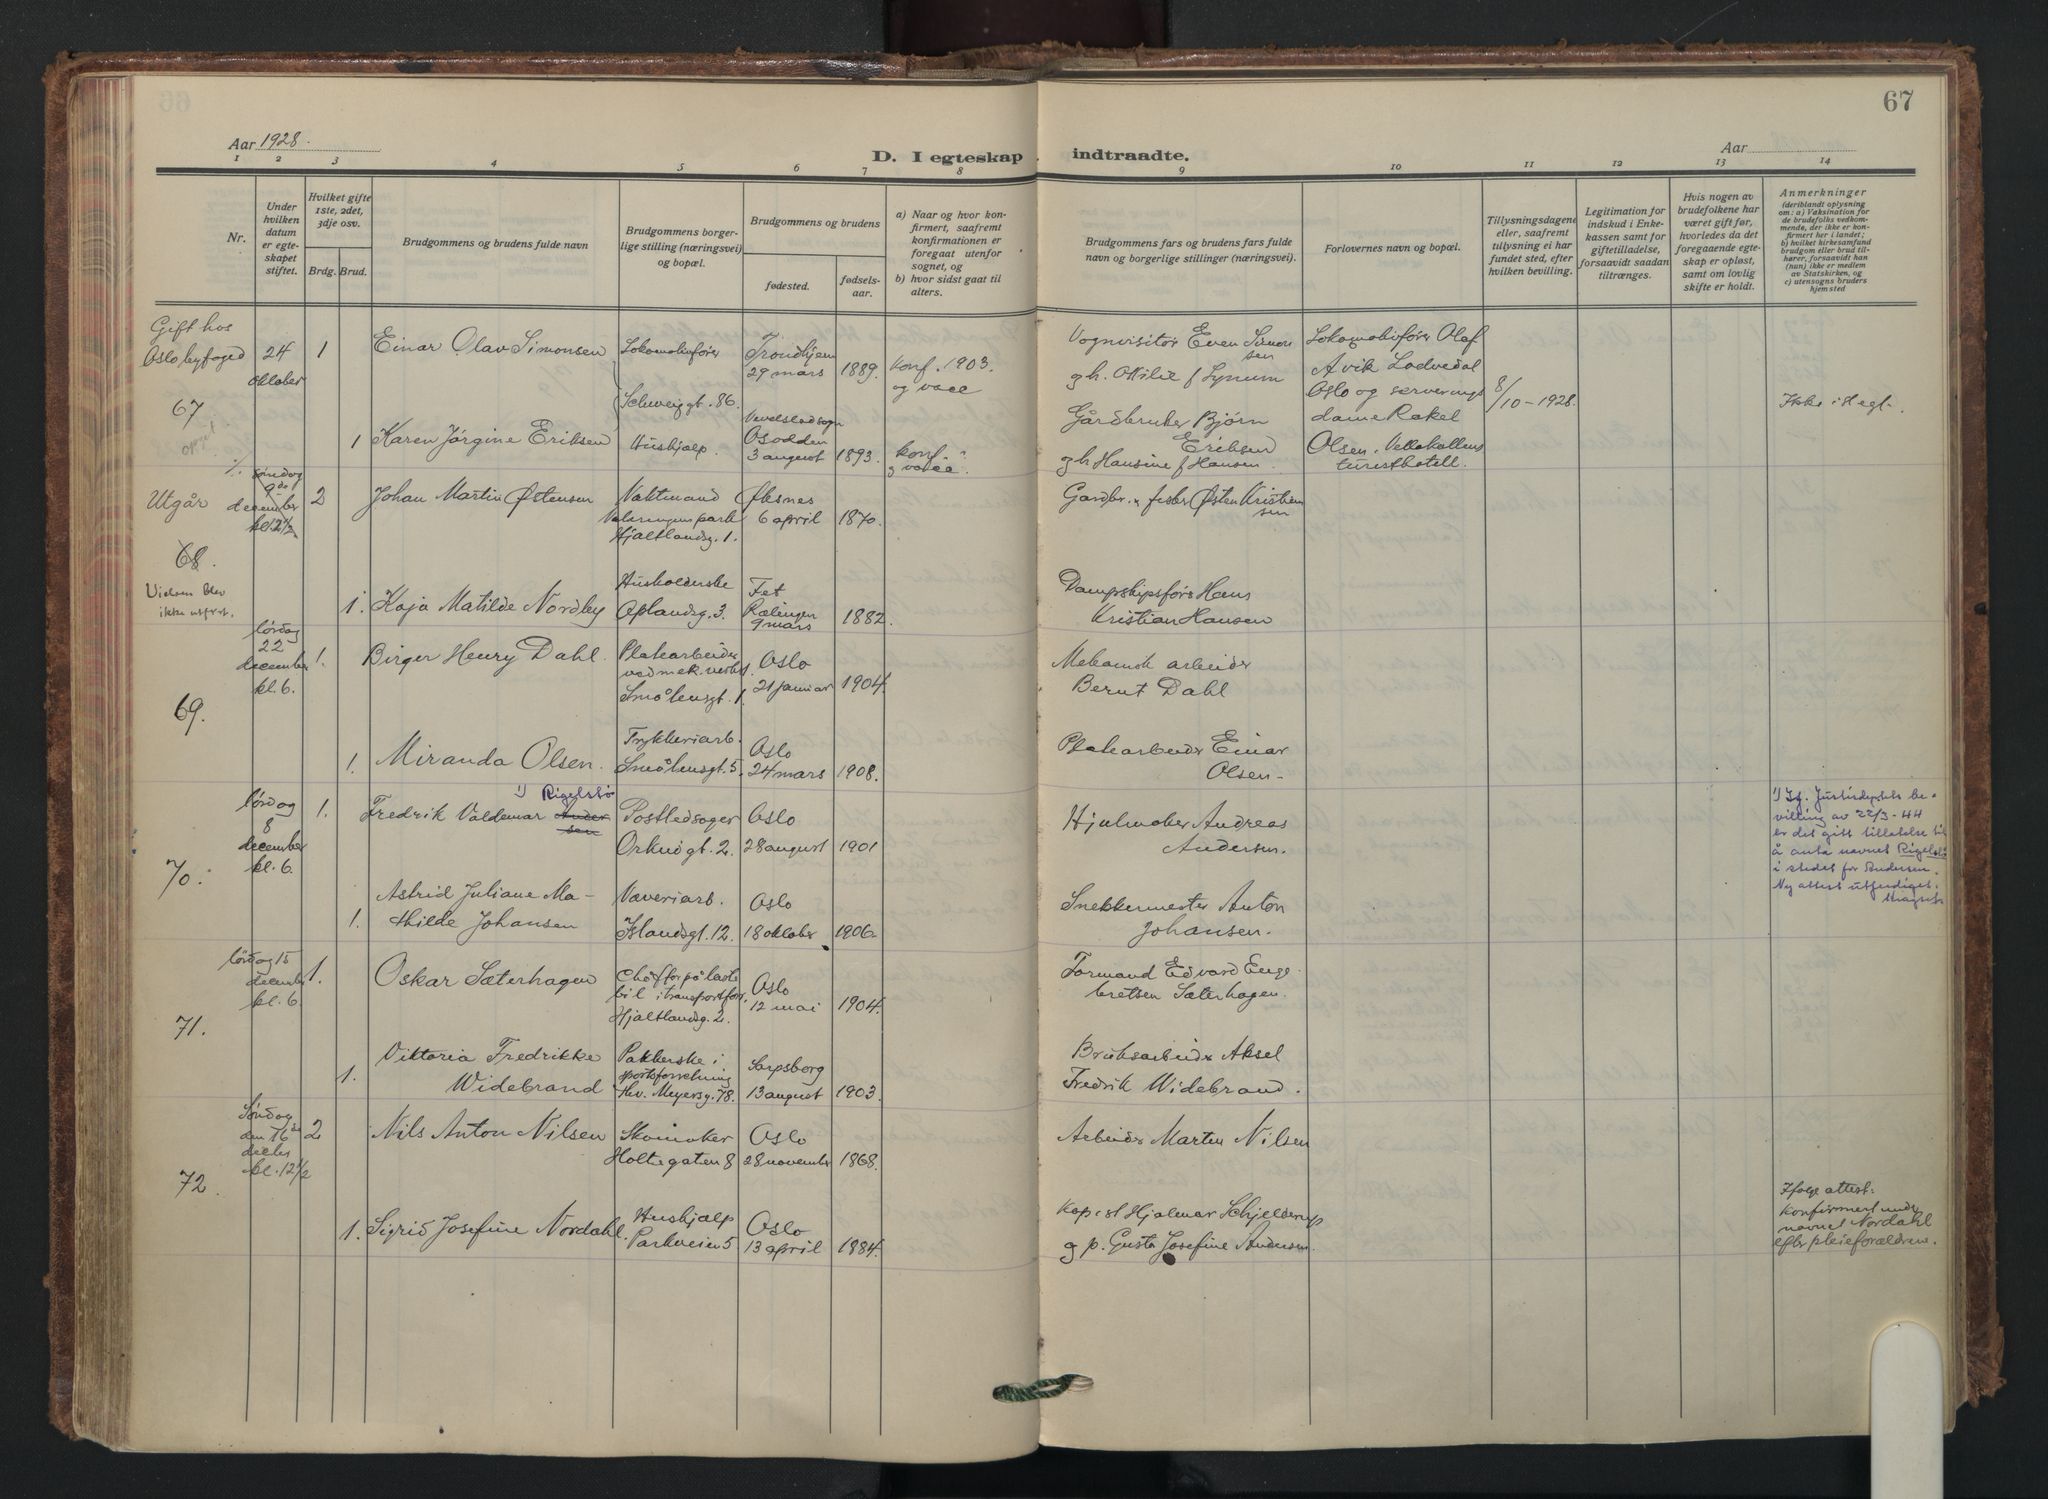 67
Aar 1928.
D. I egteskap indtraadte.
Aar
1 2 3 4 5 6 7 8 9 10 11 12 13 14
Nr.
Under hvilken datum er egteskapet stiftet.
Hvilket gifte 1ste, 2det, 3dje osv.
Brdg. Brud.
Brudgommens og brudens fulde navn
Brudgommens borgerlige stilling (næringsvei) og bopæl.
Brudgommens og brudens
fødested.
fødselsaar.
a) Naar og hvor konfirmert, saafremt konfirmationen er foregaat utenfor sognet, og
b) hvor sidst gaat til alters.
Brudgommens fars og brudens fars fulde navn og borgerlige stillinger (næringsvei).
Forlovernes navn og bopæl.
Tillysningsdagene eller, saafremt tillysning ei har fundet sted, efter hvilken bevilling.
Legitimation for indskud i Enkekassen samt for giftetilladelse, forsaavidt saadan tiltrænges.
Hvis nogen av brudefolkene har været gift før, hvorledes da det foregaaende egteskap er opløst, samt om lovlig skifte er holdt.
Anmerkninger
(deriblandt oplysning om: a) Vaksination for de brudefolks vedkommende, der ikke er konfirmert her i landet; b) hvilket kirkesamfund brudgom eller brud tilhører, forsaavidt han (hun) ikke er medlem av Statskirken, og c) utensogns bruders hjemsted
Gift hos
Oslo byfoged
24
oktober
1
Einar Olav Simonsen
Lokomotivfører
Trondhjem
29 mars
1889.
Konf. 1903.
og vacc
Vognvisitør Even Simonsen
og h. Ottilie f Lynum
Lokomotivfører Olaf
Avik Lodvedal
Oslo og serveringsdame Rakel
Olsen. Vettakollens
turisthotell.
8/10-1928.
Ikke i stegt.
67
Schweiggt. 86.
1
Karen Jørgine Eriksen
Hushjælp.
Osodden
3 august
1893.
konf.
og vacc.
Gårdbruker Bjørn
Eriksen
og h Hansine f Hansen.
Utgår
søndag
9de
december
kl. 12½
2
Johan Martin Østensen
Vaktmand
Valeringens park
Hjaltlandsg. 1.
Øksnes
6 april
1870.
Gardbr. & fisker Østen Kristiansen
68.
Vielsen blev
ikke utført.
1.
Kaja Matilde Nordby
Husholderske
Oplandsg. 3.
Fet
Rælingen
9 mars
1882.
Dampskipsfører Hans
Kristian Hansen
lørdag
22
december
kl. 6.
1.
Birger Henry Dahl.
Platearbeider
ved mek. verkst.
Smålensgt. 1.
Oslo
21 januar
1904.
Mekanisk arbeider
Bernt Dahl
69.
1.
Miranda Olsen.
Trykkeriarb.
Smålensgt. 5.
Oslo
24 mars
1908.
Platearbeider Einar
Olsen-
lørdag
8
december
kl. 6.
1.
1) Rigelstø
Fredrik Valdemar Andersen
Postledsager
Orknøgt. 2.
Oslo
28 august
1901
Hjulmaker Andreas
Andersen.
1) Ifg. Justisdeptets bevilling av 22/3-44
er det gitt tillatelse til
å anta navnet Rigelstø
i stedet for Andersen.
Ny attest utferdiget.
70.
1.
Astrid Juliane Mathilde Johansen
Væveriarb.
Islandsgt. 12.
Oslo
18 oktober
1906-
Snekkermester Anton
Johansen.
lørdag 15
december
kl. 6.
1.
Oskar Sæterhagen
Chåffør på lastebil i transportforr.
Hjaltlandsg. 2.
Oslo
12 mai
1904.
Formand Edvard Engebretsen Sæterhagen.
71.
1.
Viktoria Fredrikke
Widebrand
Pakkerske i
sportsforretning
Thv. Meyersg. 78.
Sarpsborg
13 august
1903.
Bruksarbeider Aksel
Fredrik Widebrand.
Søndag
den 16de
decbr
kl. 12½
2
Nils Anton Nilsen
Skomaker
Holtegaten 8
Oslo
28 november
1868.
Arbeider Marten Nilsen
72.
1.
Sigrid Josefine Nordahl.
Hushjælp
Parkveien 5
Oslo
13 april
1884.
Kapt Hjalmar Schjelderup
og p. Gusta Josefine Andersen.
Ifølge attest:
konfirmert under
navnet Nordahl
efter pleieforældrene.